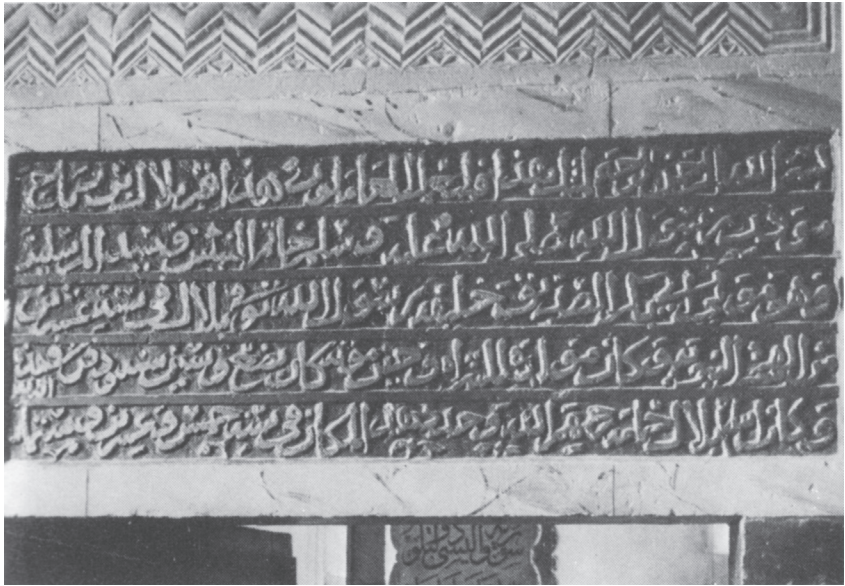 بسم الله الرحمن الرحيم لمثل هذا فليعمل العاملون هذا قبر بلال بن حمامة
مؤذن رسول الله صلى الله عليه وسلم خاتم النبيين وسيد المرسلين
وهو مولى ابي بكر الصديق خليفة رسول الله توفي بلال في سنة عشرين
من الهجرة النبوية وكان مولده بالسراة وحين موته كان بضع وستين سنة ودفن
رحمهم الله المكان في سنة خمس وعشرين وستمائة